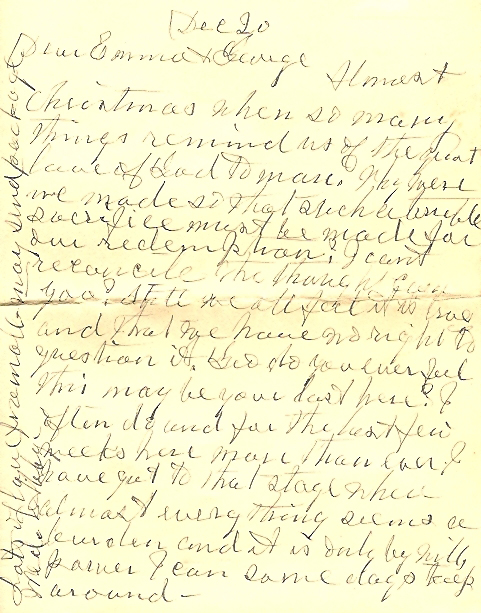 Dec 20
Dear Emma & George
Almost
Christmas when so many
things remind us of the great
love of God to man. Why were
we made so that such a terrible
sacrifice must be made for
our redemption? I can't
reconcile the
you? Still we all feel it is true
and that we have no right to
question it. Geo do you ever feel
this may be your last here? I
often do and for the last few
weeks here more than ever I
have got to that stage when
almost everything seems a
burden and it is only by will
power I can some days keep
around -
Lots of love from all - may send package